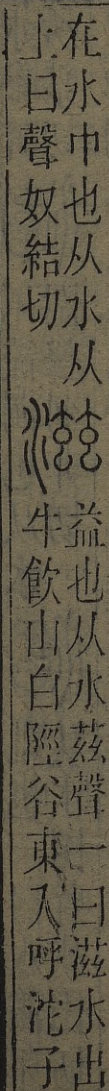 在水巾也从水从
土曰聲奴結切
滋
益也从水茲聲一曰滋水出
牛飮山白陘谷東入呼沱子